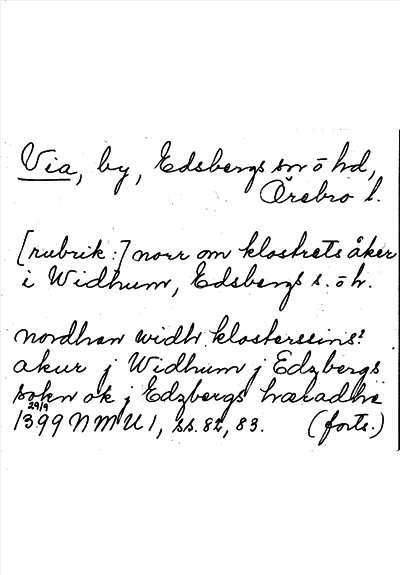 Via, by, Edsbergs sn o hd,
Örebro l.
[rubrik:] norr om klostrets åker
i Widhum, Edsbergs s. o h.
nordhan widh klosterssins
akur j Widhum j Edzbergs
sokn ok j Edzbergs hæradhæ
29/9
1399 NMU 1, ss. 82, 83. (forts.)